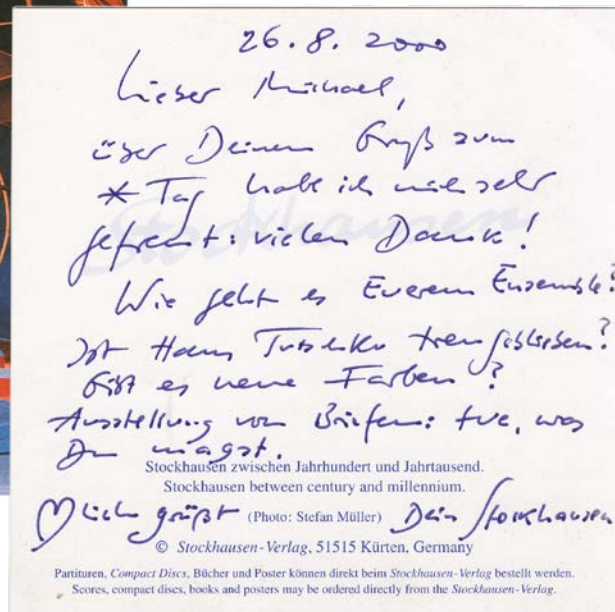 26.8.2000
Lieber Michael,
über Deinen Gruß zum
* Tag habe ich mich sehr
gefreut: vielen Dank!
Wie geht es Euerem Ensemble?
Ist Hans Tutschku treu geblieben?
Gibt es neue Farben?
Ausstellung von Briefen: tue, was
Du magst.
Stockhausen zwischen Jahrhundert und Jahrtausend.
Stockhausen between century and millennium.
♡lich grüßt (Photo: Stefan Müller) Dein Stockhausen
© Stockhausen-Verlag, 51515 Kürten, Germany
Partituren, Compact Discs, Bücher und Poster können direkt beim Stockhausen-Verlag bestellt werden.
Scores, compact discs, books and posters may be ordered directly from the Stockhausen-Verlag.
Stockhausen